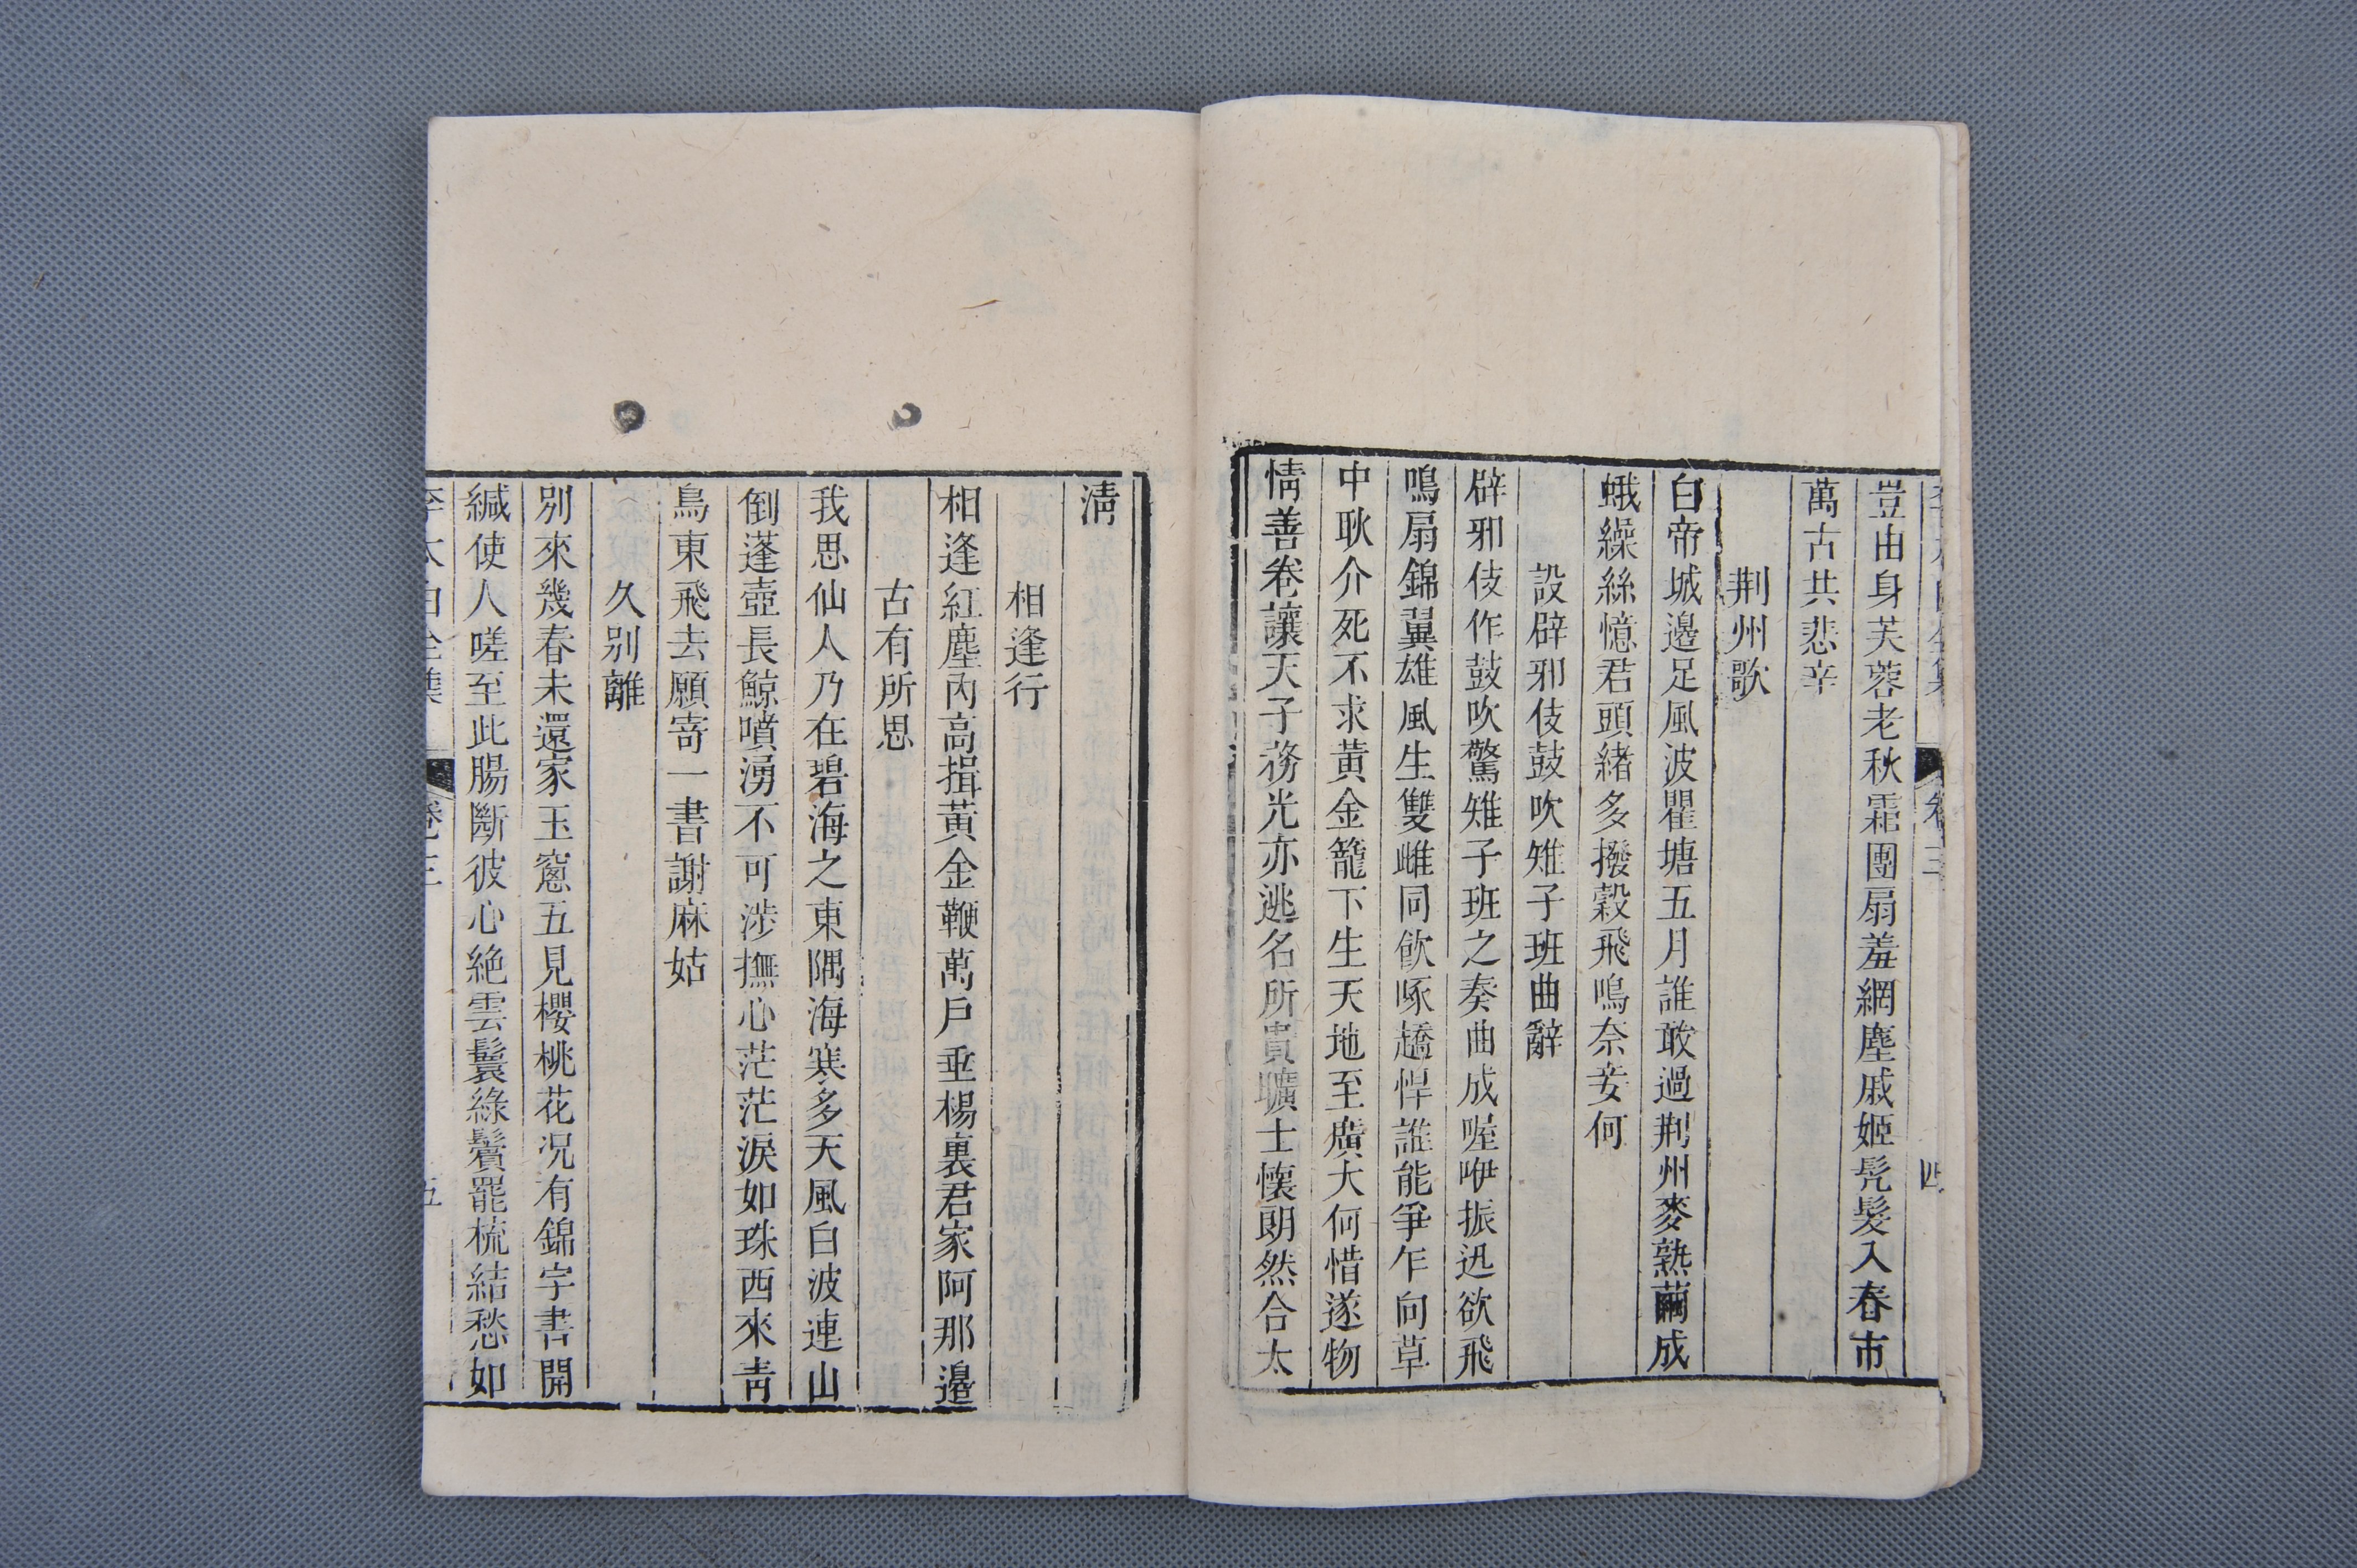 豈由身芙蓉老秋霜團扇羞網塵戚姬髠髮入春市
萬古共悲辛
荆州歌
白帝城邊足風波瞿塘五月誰敢過荆州麥熟繭成
蛾繰絲憶君頭緒多撥穀飛鳴奈妾何
設辟邪伎鼓吹雉子班曲辭
辟邪伎作鼓吹驚雉子班之奏曲成喔咿振迅欲飛
鳴扇錦翼雄風生雙雌同飮啄趫悍誰能爭乍向草
中耿介死不求黃金籠下生天地至廣大何惜遂物
情善卷讓天子務光亦逃名所貴曠士懷朗然合太
清
相逢行
相逢紅塵內高揖黃金鞭萬戶垂楊裏君家阿那邊
古有所思
我思仙人乃在碧海之東隅海寒多天風白波連山
倒蓬壺長鯨噴湧不可涉撫心茫茫淚如珠西來靑
鳥東飛去願寄一書謝麻姑
久别離
別來幾春未還家玉窻五見櫻桃花況有錦字書開
緘使人嗟至此腸斷彼心絶雲鬟綠鬢罷梳結愁如
李太白全集
卷三
五